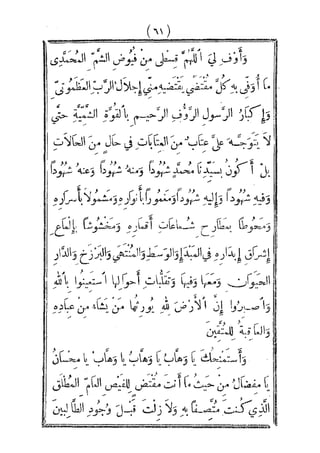 (٦١)
وَأَوْفِ لِيَ اللَّهُمَّ قِسْطِي مِنْ فُيُوضِ الشَّمِّ المُحَمَّدِي
مَا أُوَفِّي بِهِ كُلَّ مُقْتَضًى يَقْتَضِيهِ مِنِّي إِجْلَالُ الرَّبِّ العَظَمُوتِيِّ
وَإِكْبَارُ الرَّسُولِ الرَّؤُوفِ الرَّحِيمِ بِالْقُوَّةِ الشَّمِّيَّةِ حَتَّى
لَا يَتَوَجَّهَ عَلَيَّ عِتَابٌ مِنَ العِتَابَاتِ فِي حَالٍ مِنَ الحَالَاتِ
بَلْ أَكُونُ بِسَيِّدِنَا مُحَمَّدٍ شُهُودًا وَمِنْهُ شُهُودًا وَعَنْهُ شُهُودًا
وَفِيهِ شُهُودًا وَإِلَيْهِ شُهُودًا وَمَغْمُورًا بِأَنْوَارِهِ وَمَشْمُولًا بِأَسْرَارِهِ
وَمَحُوطًا بِمَطَارِحِ شُعَاعَاتِ أَقْمَارِهِ وَمَخْشُوشًا بِإِلْمَاعِ
إِشْرَاقِ إِبْدَارِهِ فِي المَبْدَإِ وَالوَسَطِ وَالمُنْتَهَى وَالبَرْزَخِ وَالدَّارِ
الحَيَوَانِ وَمَعَهَا وَفِيهَا وَتَقَلُّبَاتِ أَحْوَالِهَا اسْتَعِينُوا بِاللهِ
وَاصْبِرُوا إِنَّ الأَرْضَ لِلهِ يُورِثُهَا مَنْ يَشَاءُ مِنْ عِبَادِهِ
وَالعَاقِبَةُ لِلْمُتَّقِينَ
وَأَسْتَمْنِحُكَ يَا وَهَّابُ يَا وَهَّابُ يَا وَهَّابُ يَا مِحْسَانُ
يَا مِفْضَالُ مِنْ حَيْثُ مَا أَنْتَ مُقْتَضٍ لِلْفَيْضِ العَامِّ المُطْلَقِ
الَّذِي كُنْتَ مُتَّصِفًا بِهِ وَلَا زِلْتَ قَبْلَ وُجُودِ الطَّالِبِينَ